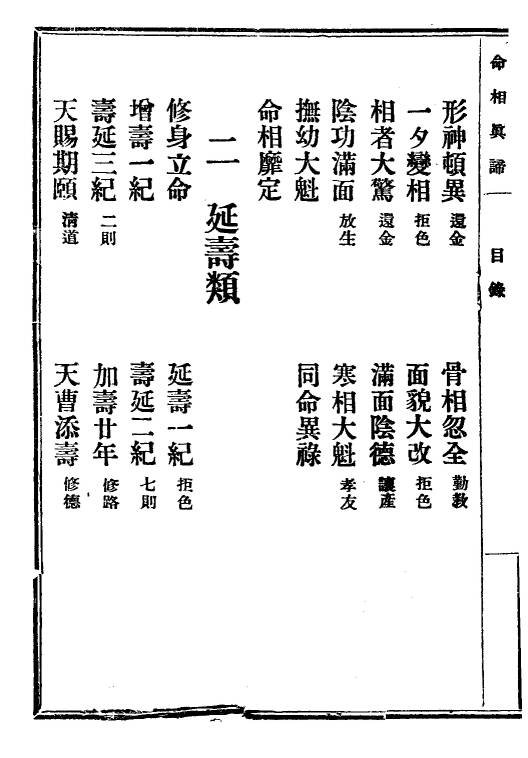 命相眞諦
目錄
形神頓異 還金
骨相忽全 勤敎
一夕變相 拒色
面貌大改 拒色
相者大驚 還金
滿面陰德 讓產
陰功滿面 放生
寒相大魁 孝友
撫幼大魁
同命異祿
命相靡定
二 延壽類
修身立命
延壽一紀 拒色
增壽一紀
壽延二紀 七則
壽延三紀 二則
加壽廿年 修路
天賜期頤 清道
天曹添壽 修德